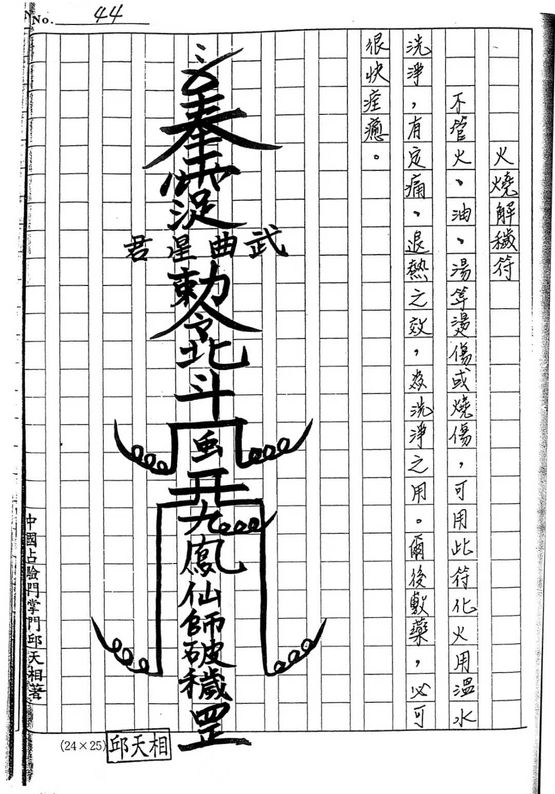 No. 44
火燒解穢符
不管火、油、湯等燙傷或燒傷，可用此符化火用溫水
洗淨，有定痛、退熱之效，為洗淨之用。爾後敷藥，必可
很快痊癒。
奉
武曲星君
敕令北斗
九鳳仙師破穢罡
中國占驗門掌門邱天相著
(24×25)
邱天相